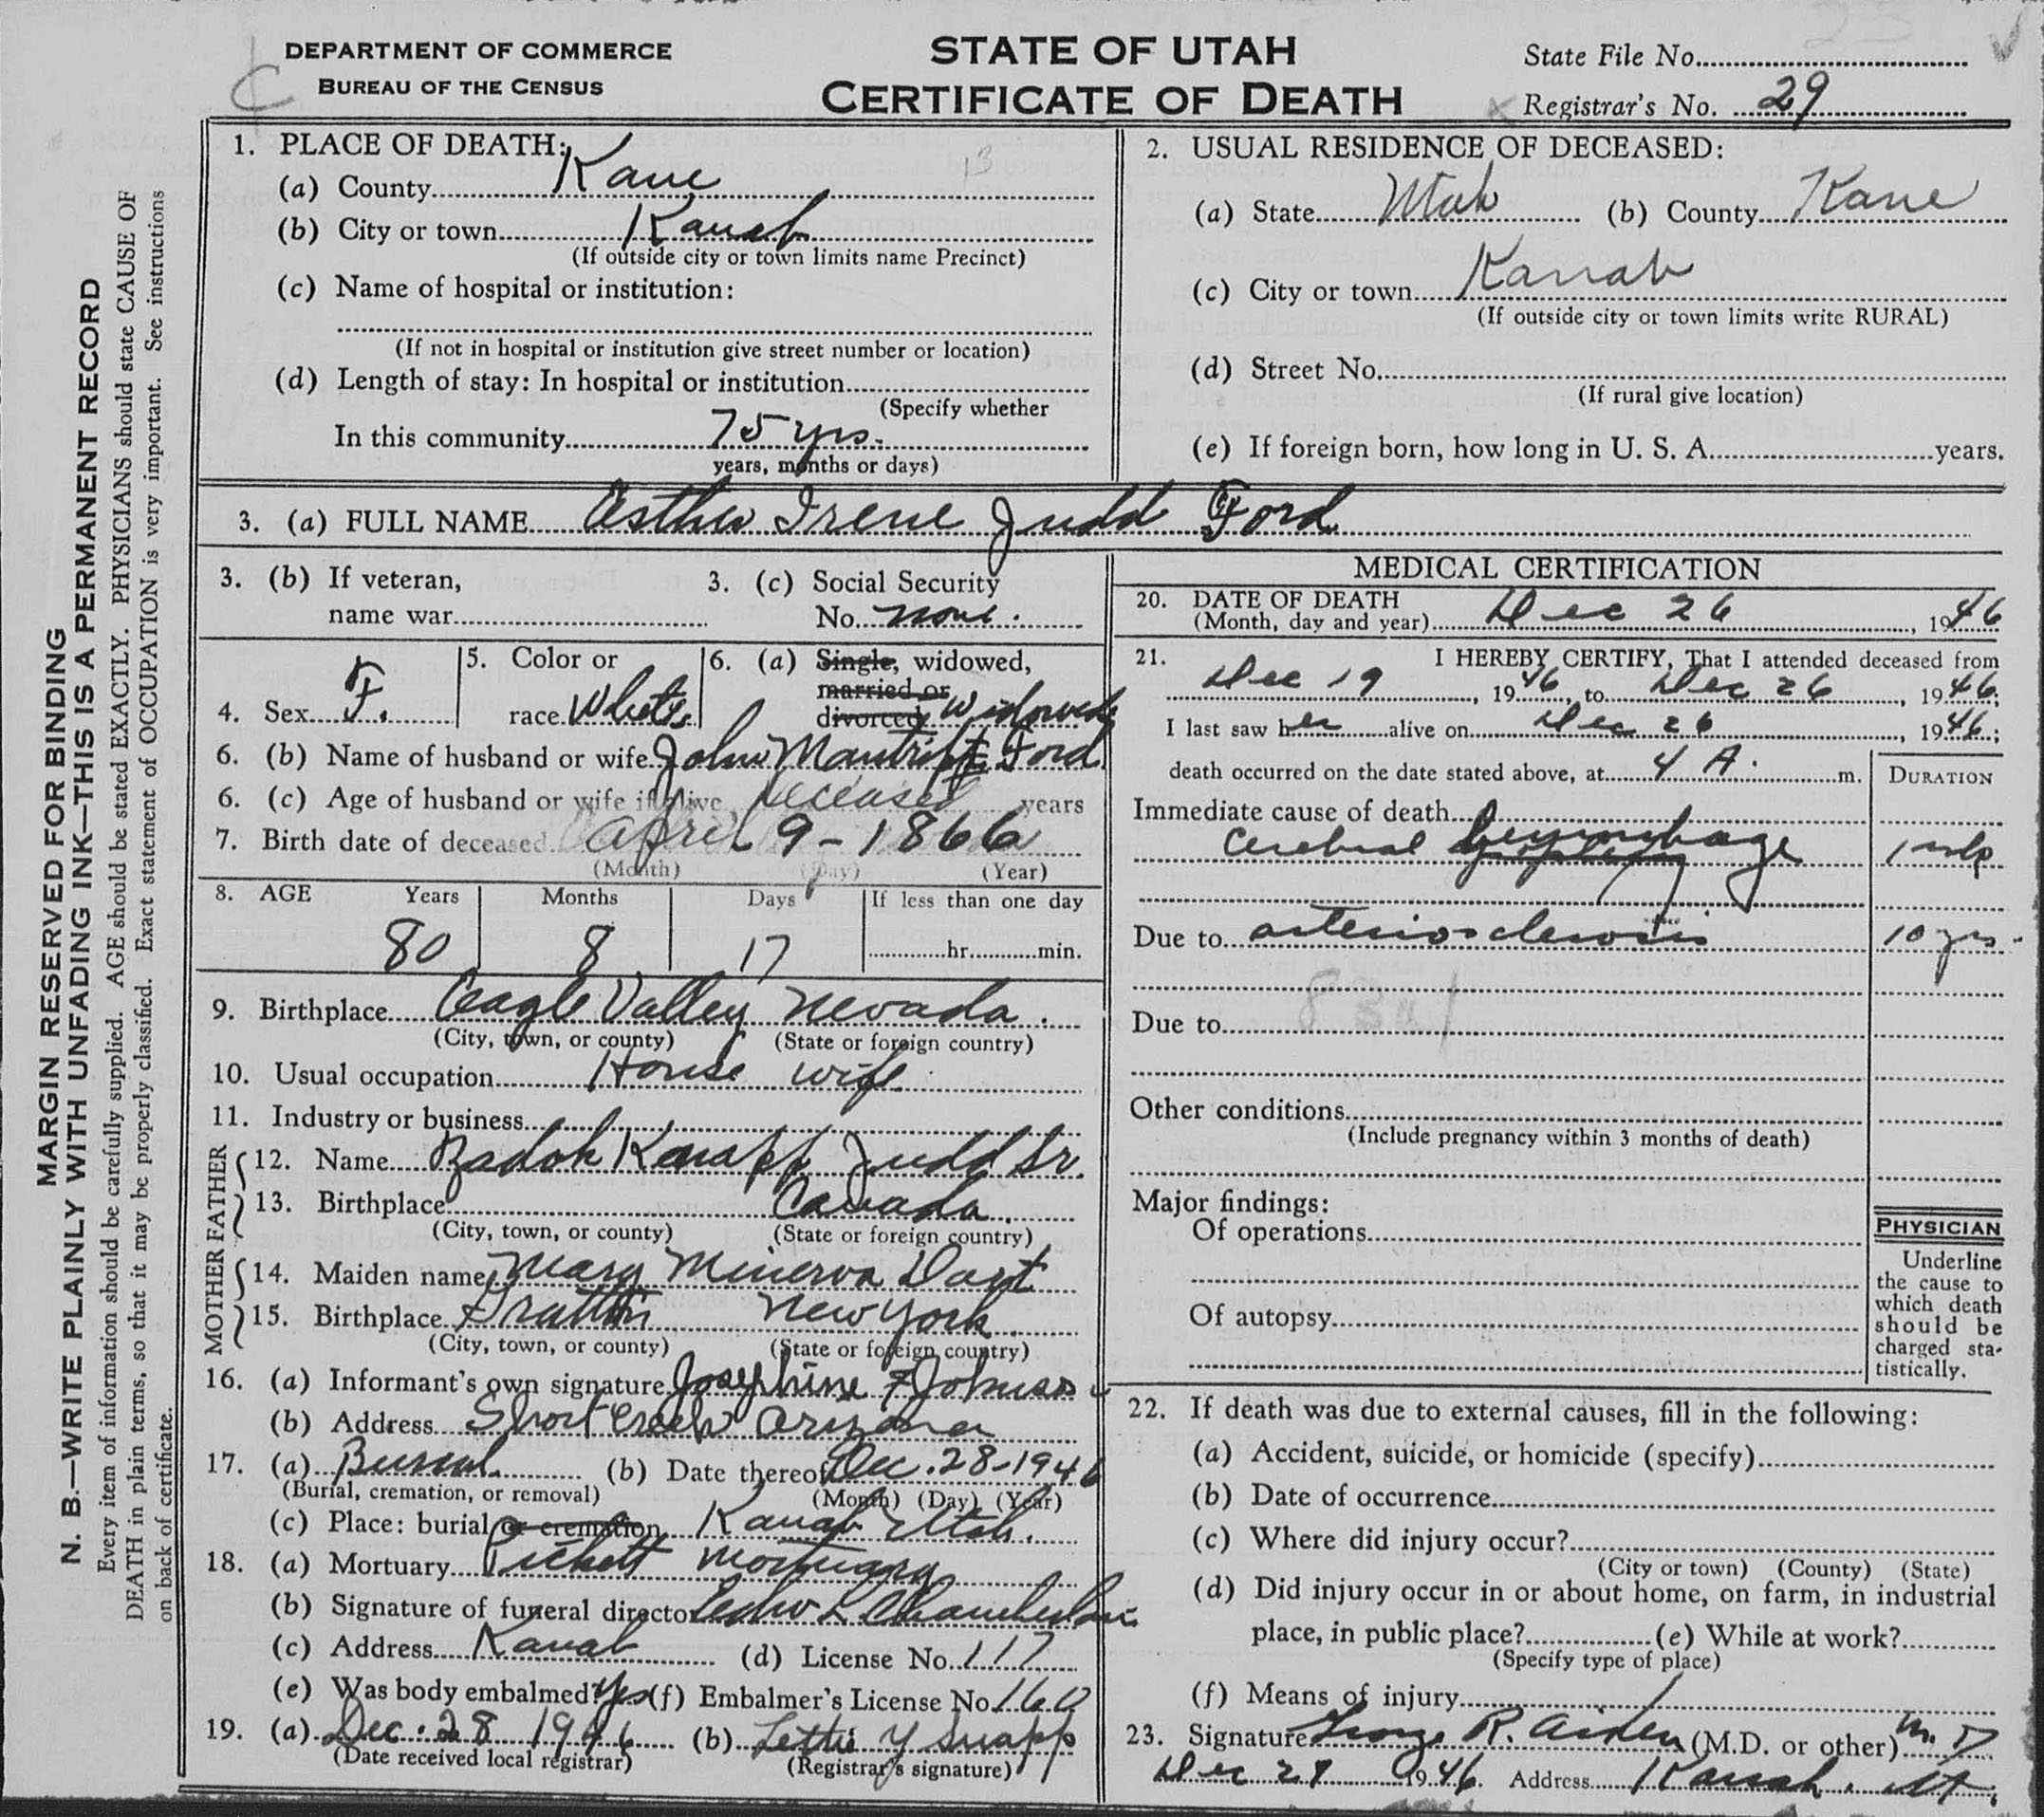 DEPARTMENT OF COMMERCE
BUREAU OF THE CENSUS
STATE OF UTAH
CERTIFICATE OF DEATH
State File No.
Registrar's No. 29
MARGIN RESERVED FOR BINDING
N. B.—WRITE PLAINLY WITH UNFADING INK—THIS IS A PERMANENT RECORD
Every item of information should be carefully supplied. AGE should be stated EXACTLY. PHYSICIANS should state CAUSE OF
DEATH in plain terms, so that it may be properly classified. Exact statement of OCCUPATION is very important. See instructions
on back of certificate.
1. PLACE OF DEATH:
(a) County Kane
(b) City or town Kanab
(If outside city or town limits name Precinct)
(c) Name of hospital or institution:
(If not in hospital or institution give street number or location)
(d) Length of stay: In hospital or institution
(Specify whether
In this community 75 yrs.
years, months or days)
2. USUAL RESIDENCE OF DECEASED:
(a) State Utah (b) County Kane
(c) City or town Kanab
(If outside city or town limits write RURAL)
(d) Street No.
(If rural give location)
(e) If foreign born, how long in U. S. A. years.
3. (a) FULL NAME Esther Irene Judd Ford
3. (b) If veteran,
name war
3. (c) Social Security
No. none.
4. Sex F.
5. Color or
race White
6. (a) Single, widowed,
married or
divorced Widowed
6. (b) Name of husband or wife John Ford
6. (c) Age of husband or wife if alive deceased years
7. Birth date of deceased April 9 - 1866
(Month) (Day) (Year)
8. AGE Years Months Days If less than one day
80 8 17 hr. min.
9. Birthplace Eagle Valley Nevada.
(City, town, or county) (State or foreign country)
10. Usual occupation House wife
11. Industry or business
FATHER
12. Name Zadok Knapp Judd Sr.
13. Birthplace Canada.
(City, town, or county) (State or foreign country)
MOTHER
14. Maiden name Mary Minerva Dart
15. Birthplace New York.
(City, town, or county) (State or foreign country)
16. (a) Informant's own signature Josephine F Johnson
(b) Address Short Creek Arizona
17. (a) Burial (b) Date thereof Dec. 28-1946
(Burial, cremation, or removal) (Month) (Day) (Year)
(c) Place: burial or cremation Kanab Utah.
18. (a) Mortuary Pickett Mortuary
(b) Signature of funeral director L Chamberlain
(c) Address Kanab (d) License No. 117
(e) Was body embalmed? Yes (f) Embalmer's License No. 160
19. (a) Dec. 28 1946 (b) Lettie Y Swapp
(Date received local registrar) (Registrar's signature)
MEDICAL CERTIFICATION
20. DATE OF DEATH
(Month, day and year) Dec 26, 1946
21. I HEREBY CERTIFY, That I attended deceased from
Dec 19, 1946, to Dec 26, 1946;
I last saw her alive on Dec 26, 1946;
death occurred on the date stated above, at 4 A. m.
DURATION
Immediate cause of death
Cerebral hemorrhage 1 wk
Due to arteriosclerosis 10 yrs.
Due to
Other conditions
(Include pregnancy within 3 months of death)
Major findings:
Of operations
Of autopsy
PHYSICIAN
Underline
the cause to
which death
should be
charged sta-
tistically.
22. If death was due to external causes, fill in the following:
(a) Accident, suicide, or homicide (specify)
(b) Date of occurrence
(c) Where did injury occur?
(City or town) (County) (State)
(d) Did injury occur in or about home, on farm, in industrial
place, in public place? (e) While at work?
(Specify type of place)
(f) Means of injury
23. Signature George R. Aiken (M.D. or other) M. D.
Dec 27 1946. Address Kanab. Ut.